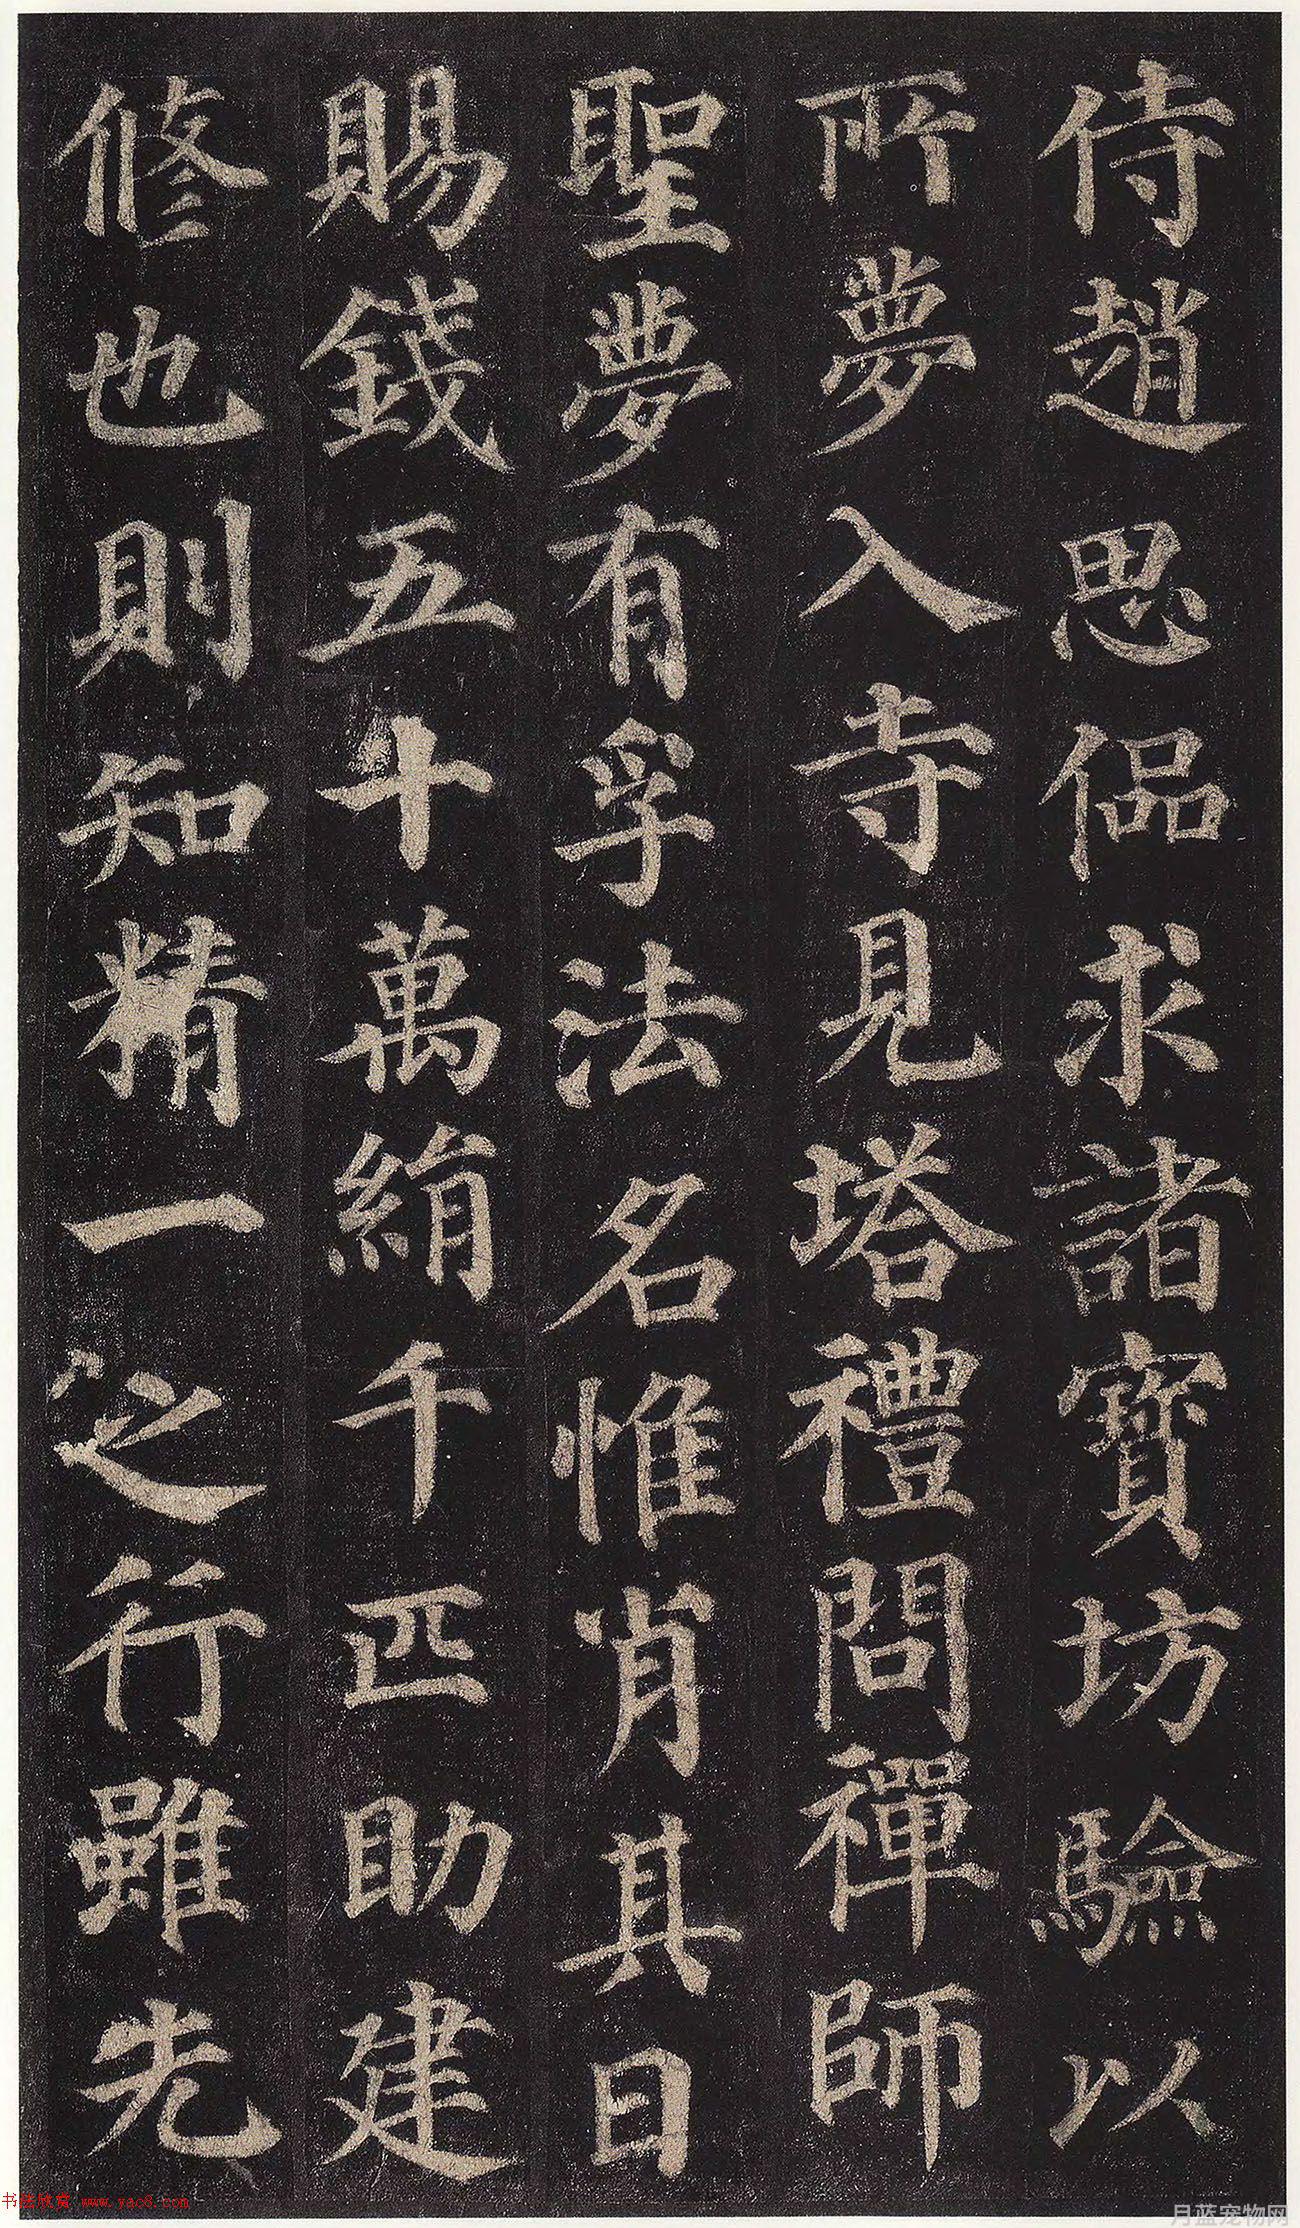 侍趙思偘求諸寶坊驗以
所夢入寺見塔禮問禪師
聖夢有孚法名惟肖其日
賜錢五十萬絹千匹助建
修也則知精一之行雖先
书法欣赏 www.yac8.com
月蓝宠物网